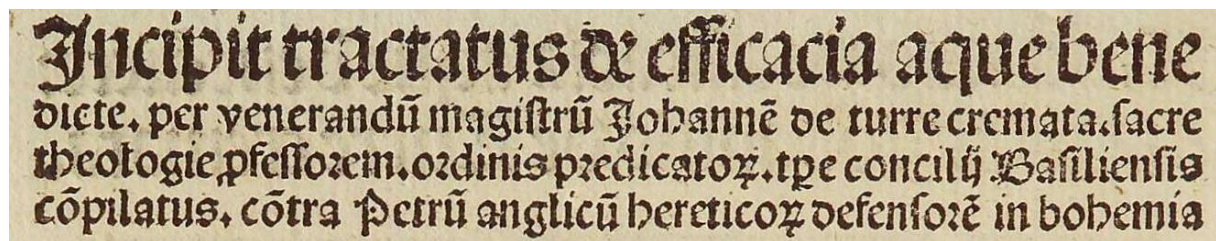 Incipit tractatus de efficacia aque bene
dicte. per venerandū magistrū Johannē de turre cremata. sacre
theologie ꝓfessorem. ordinis predicatoꝝ. tp̄e concilij Basiliensis
cōpilatus. cōtra Petrū anglicū hereticoꝝ defensorē in bohemia